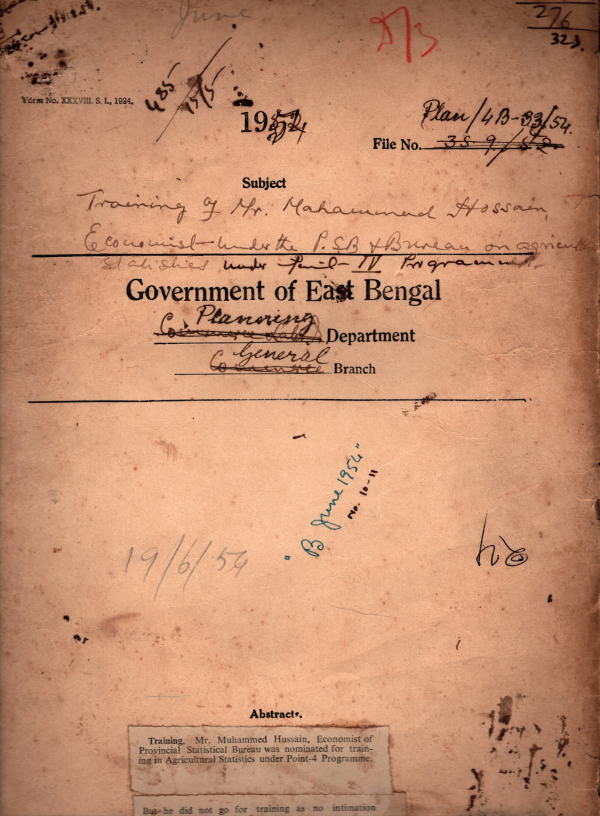 June
276
323
Form No. XXXVIII. S. I., 1934.
485
15/5
1954
Plan/4B-33/54.
File No.
Subject
Training of Mr. Mahammad Hossain,
Economist under the P.S.B & Bureau on agricult
Statistics under Point-IV Programme.
Government of East Bengal
Planning
Department
General
Commerce Branch
"B June 1954"
No. 10-11
19/6/54
Abstracts.
Training. Mr. Muhammed Hussain, Economist of
Provincial Statistical Bureau was nominated for train-
ing in Agricultural Statistics under Point-4 Programme.
But he did not go for training as no intimation